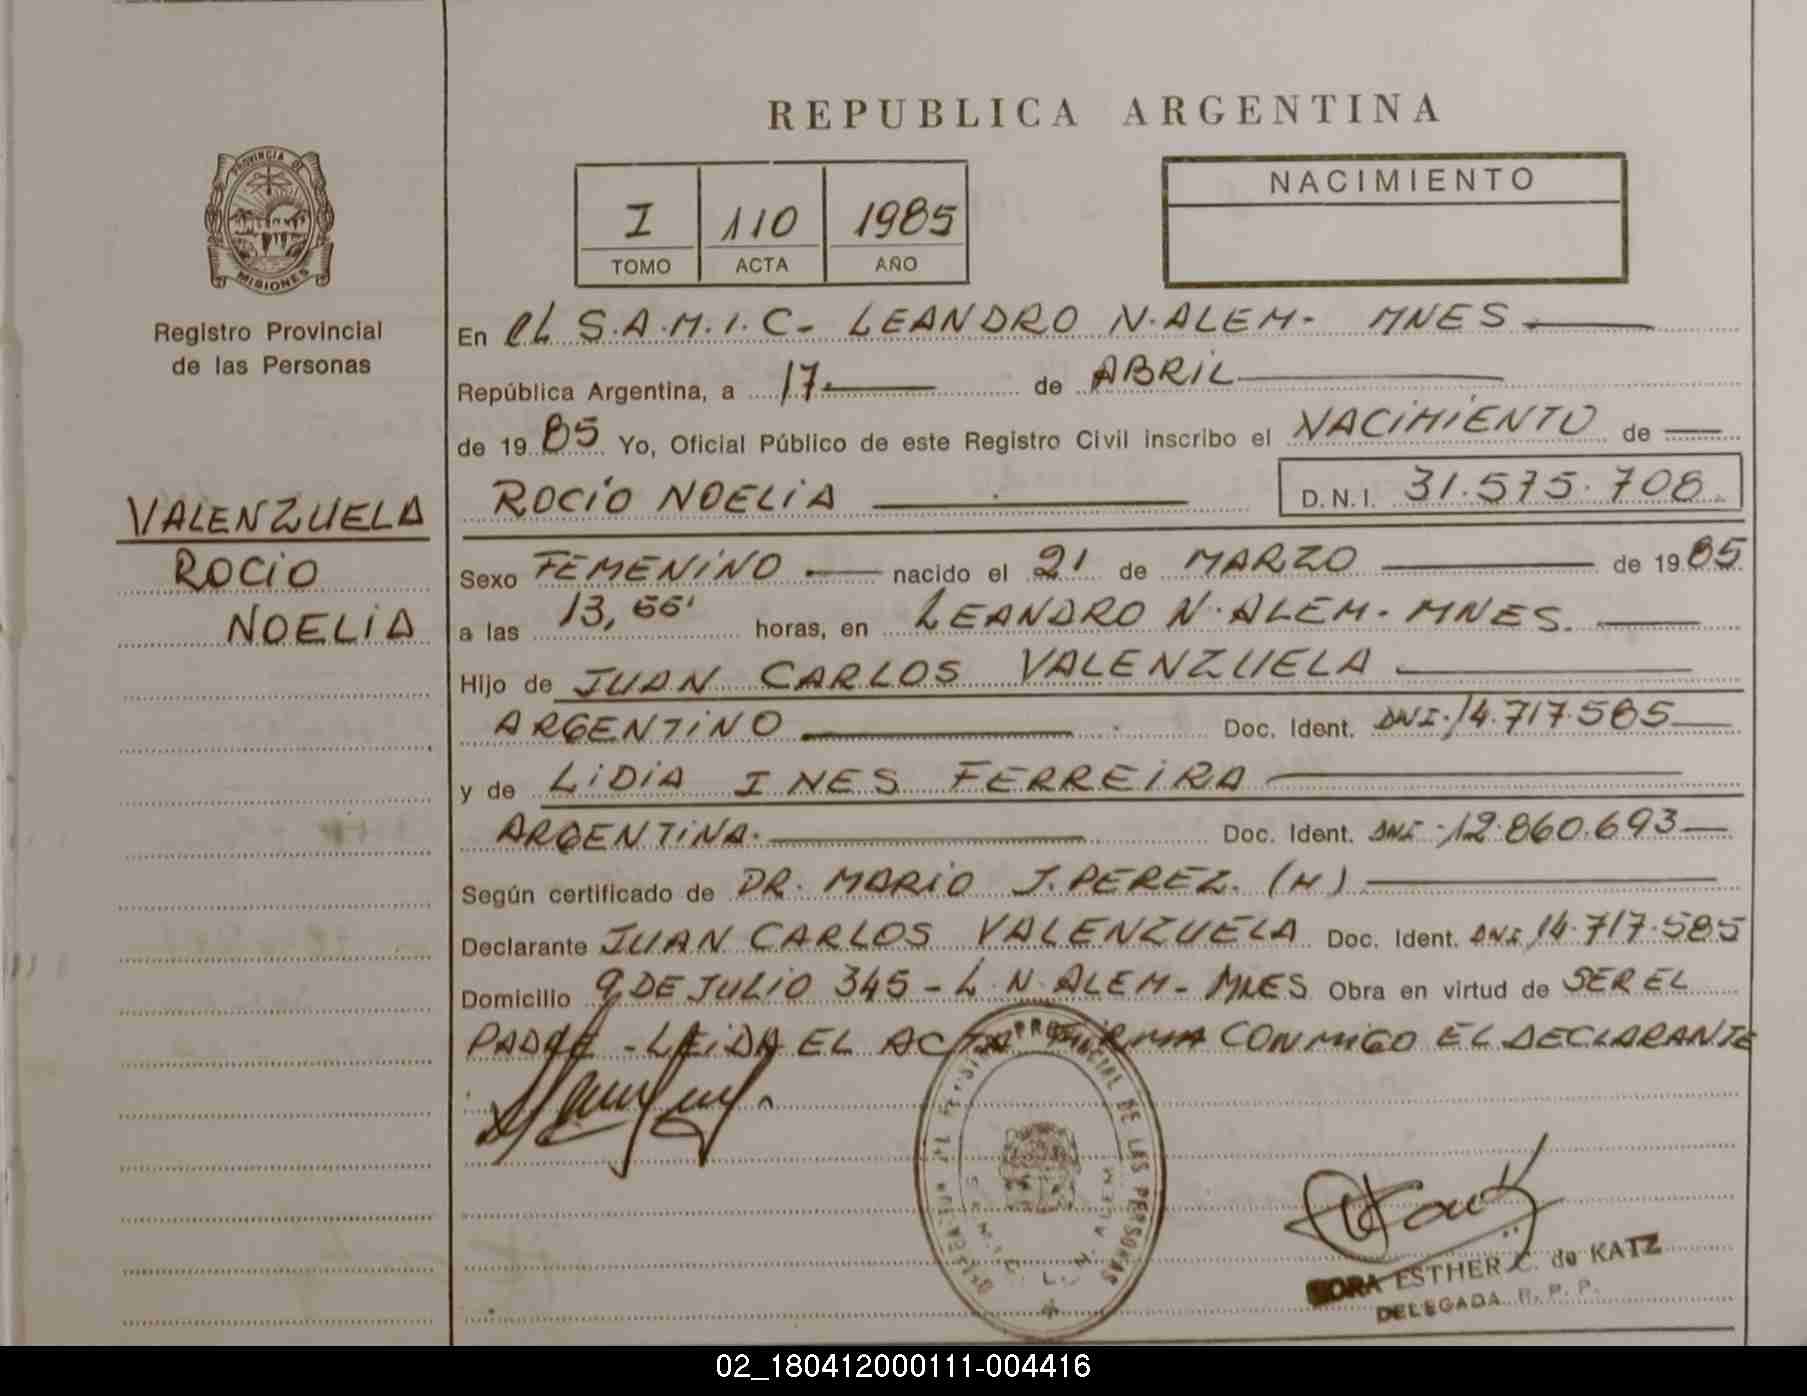 REPUBLICA ARGENTINA
PROVINCIA DE
MISIONES
Registro Provincial
de las Personas
I 110 1985
TOMO ACTA AÑO
NACIMIENTO
En el S.A.M.I.C- LEANDRO N. ALEM- MNES
República Argentina, a 17 de ABRIL
de 1985 Yo, Oficial Público de este Registro Civil inscribo el NACIMIENTO de
ROCIO NOELIA D.N.I. 31.575.708
VALENZUELA
ROCIO
NOELIA
Sexo FEMENINO nacido el 21 de MARZO de 1985
a las 13, horas, en LEANDRO N. ALEM- MNES.
Hijo de JUAN CARLOS VALENZUELA
ARGENTINO Doc. Ident. DNI. 14.717.585
y de LIDIA INES FERREIRA
ARGENTINA. Doc. Ident. DNI. 12.860.693
Según certificado de DR. MARIO J. PEREZ. (H)
Declarante JUAN CARLOS VALENZUELA Doc. Ident. DNI 14.717.585
Domicilio 9 DE JULIO 345 - L. N. ALEM- MNES Obra en virtud de SER EL
PADRE - LEIDA EL ACTA FIRMA CONMIGO EL DECLARANTE
PROVINCIAL DE LAS PERSONAS
S.A.M.I.C. L. N. ALEM
ESTHER C. de KATZ
DELEGADA R. P. P.
02_180412000111-004416